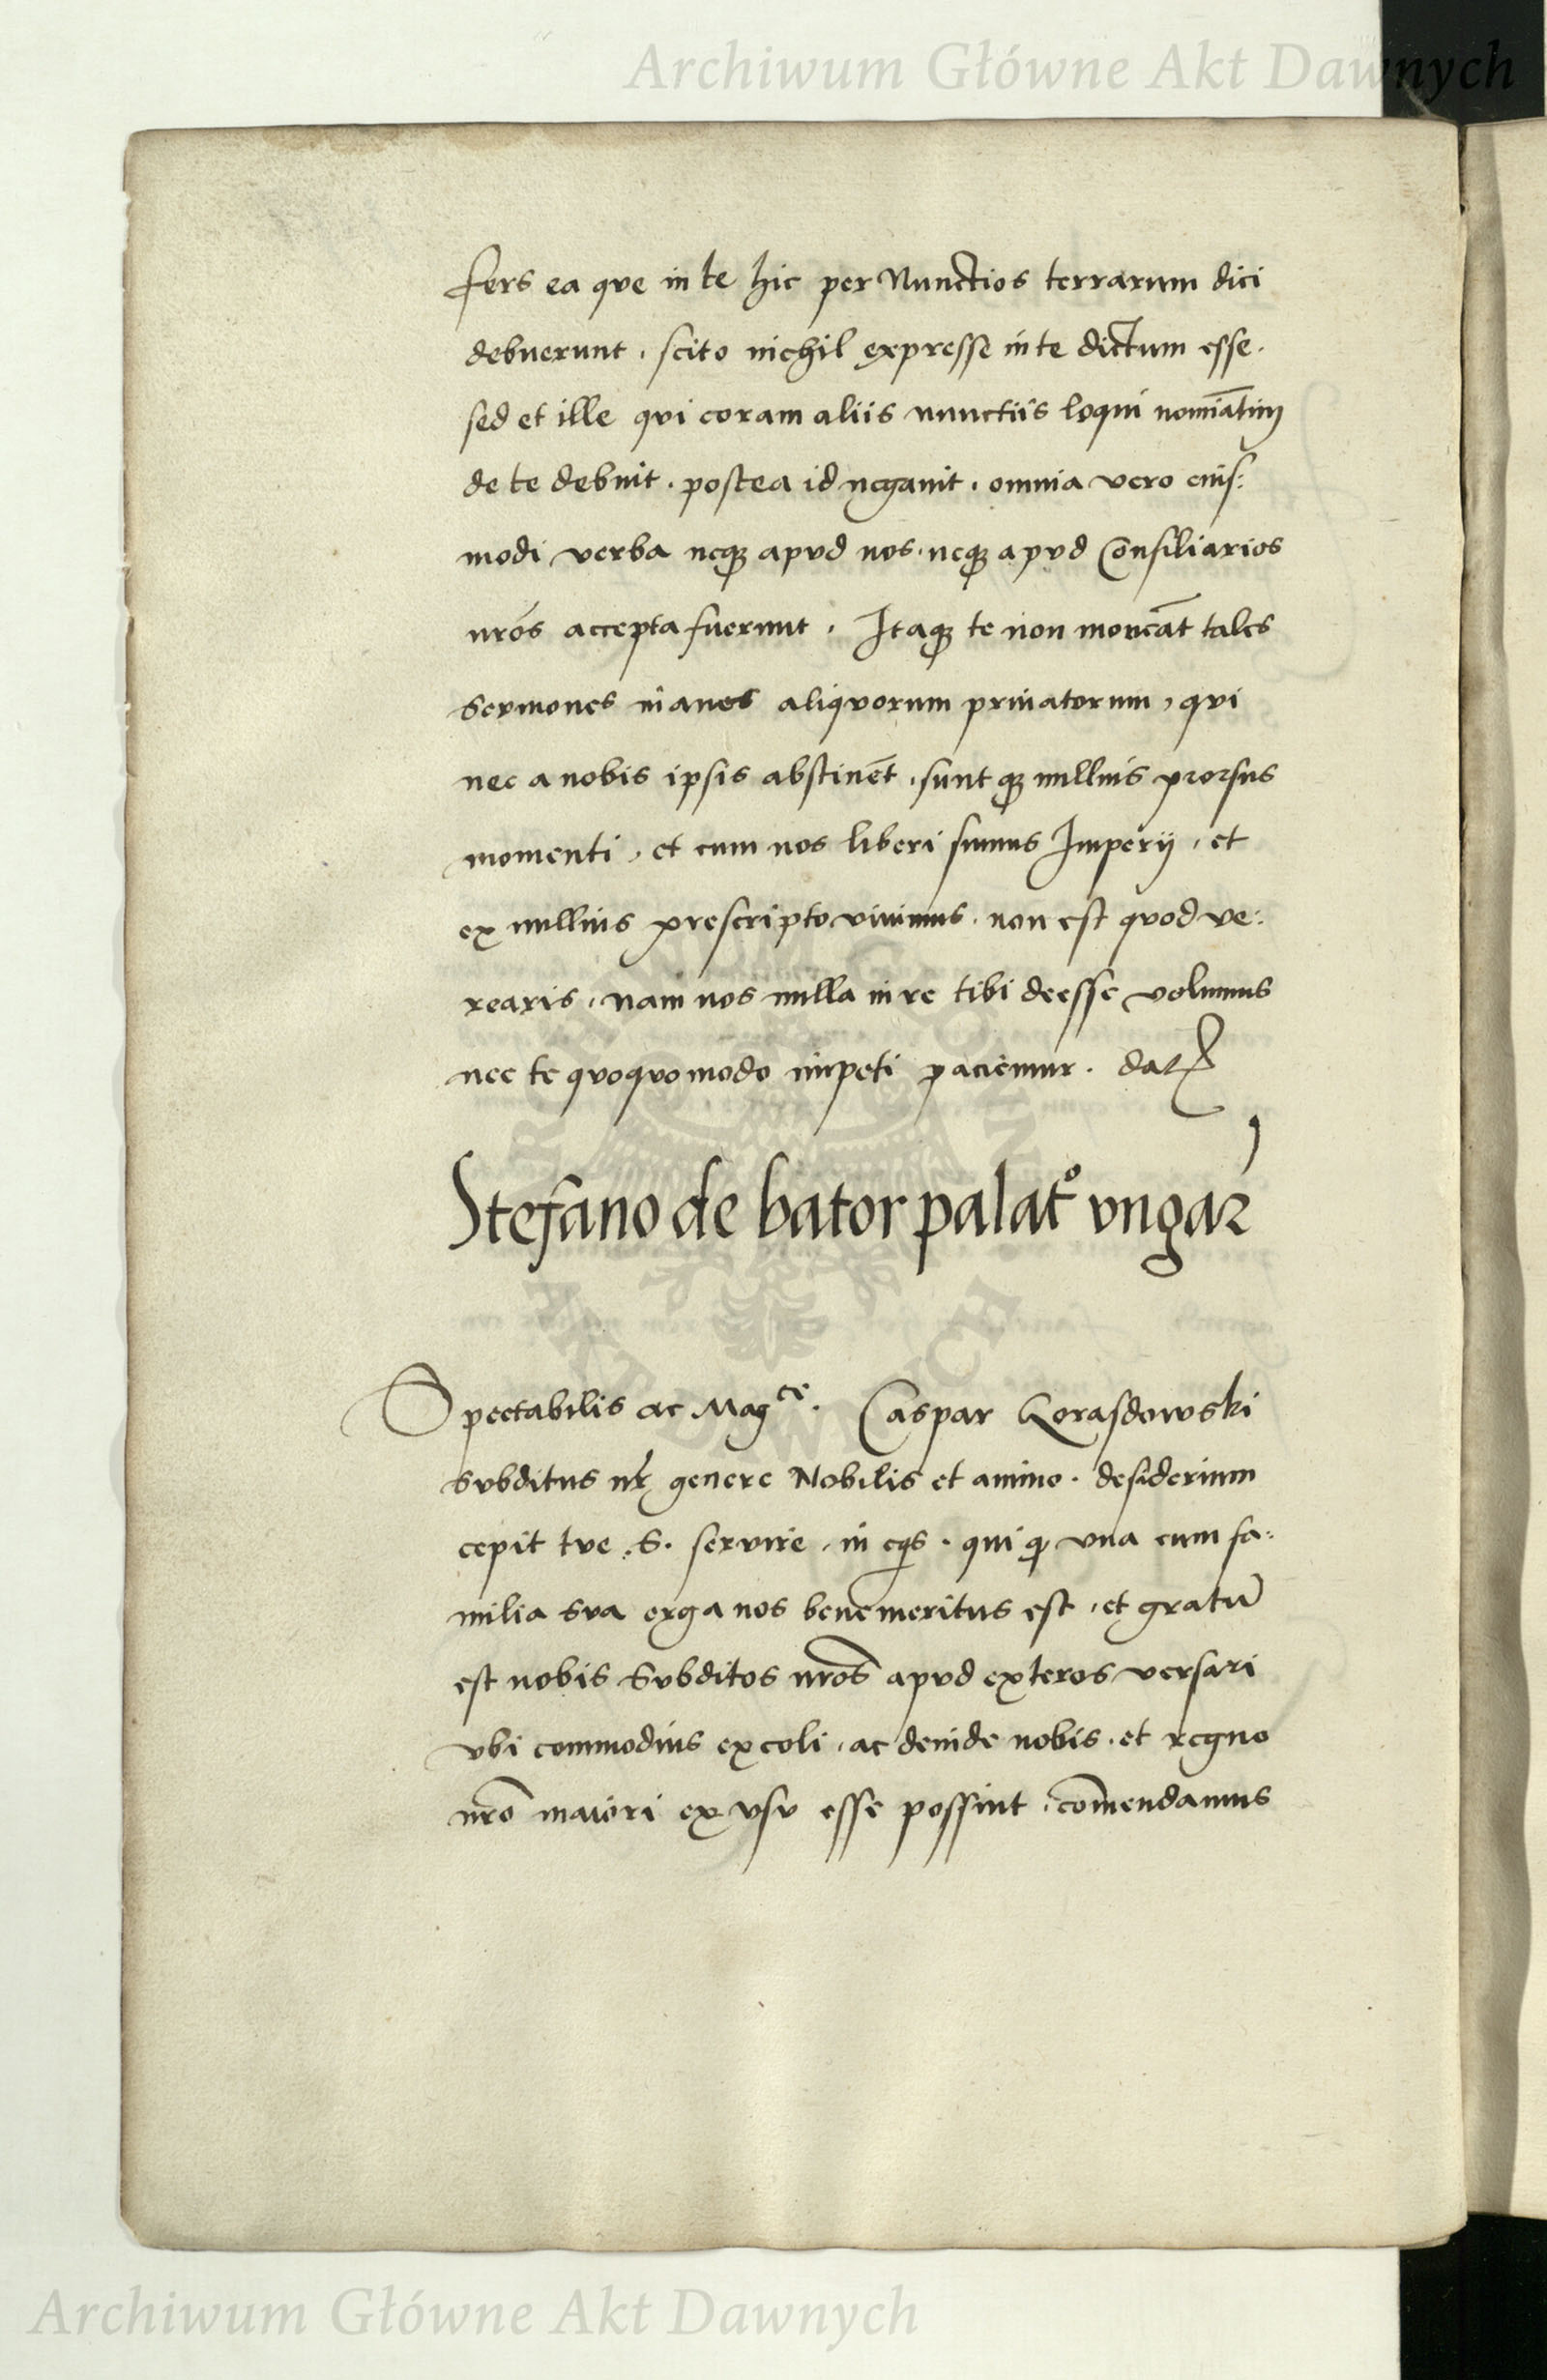 Archiwum Główne Akt Dawnych
fers ea que in te hic per Nunctios terrarum dici
debuerunt, scito nichil expresse in te dictum esse.
sed et ille qui coram aliis nunctiis loqui nomiãtim
de te debuit. postea id negauit, omnia vero eius:
modi verba neqꝫ apud nos, neqꝫ apud Consiliarios
nrõs accepta fuerunt. Itaqꝫ te non moueãt tales
Sermones inanes aliquorum priuatorum, qui
nec a nobis ipsis abstinẽt, sunt qꝫ nullius prorsus
momenti, et cum nos liberi simus Imperij, et
ex nullius prescripto viuimus. non est quod ve:
rearis, nam nos nulla in re tibi deesse volumus
nec te quoquomodo impeti paciemur. Datꝭ
Stefano de bator palatº vngaꝝ
Spectabilis ac Mag^ce. Caspar
Subditus nr̃ genere Nobilis et animo. desiderium
cepit tue S. servire, in eqs. qui qꝫ vna cum fa:
milia sua erga nos benemeritus est, et gratũ
est nobis Subditos nrõs apud exteros versari
vbi commodius excoli, ac deinde nobis, et regno
nrõ maiori ex vsu esse possint, com̃endamus
ARCHIWUM GŁÓWNE
AKT DAWNYCH
Archiwum Główne Akt Dawnych